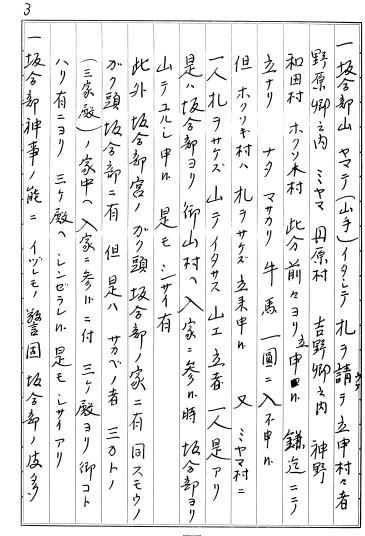 3
一坂合部山 ヤマテ(山手)イタシテ 札ヲ請テ立申村々者
ウケ
野原郷之内 ミヤマ 丹原村 吉野郷之内 神野
和田村 ホソノ木村 此分前々ヨリ立申■ル 鎌迄ニテ
立ナリ ナタ マサカリ 牛馬 一圓ニ入不申ル
但ホソノ木村ハ 札ヲサゲズ立来申ル 又 ミヤマ村ニ
一人札ヲサゲズ 山テイタサズ 山エ立者 一人是アリ
是ハ坂合部ヨリ御山村ヘ入家ニ参ル時 坂合部ヨリ
山テユルシ申ル 是モシサイ有
此外 坂合部宮ノガク頭 坂合部ノ家ニ有 同スモウノ
ガク頭 坂合部ニ有 但是ハ サカベノ者 三カトノ
(三家殿)ノ家中ヘ入家ニ参ルニ付 三ケ殿ヨリ御コト
ハリ有ニヨリ 三ケ殿ヘシンゼラレル 是モシサイアリ
一坂合部神事ノ能ニ イヅレモノ警固 坂合部ノ皮多